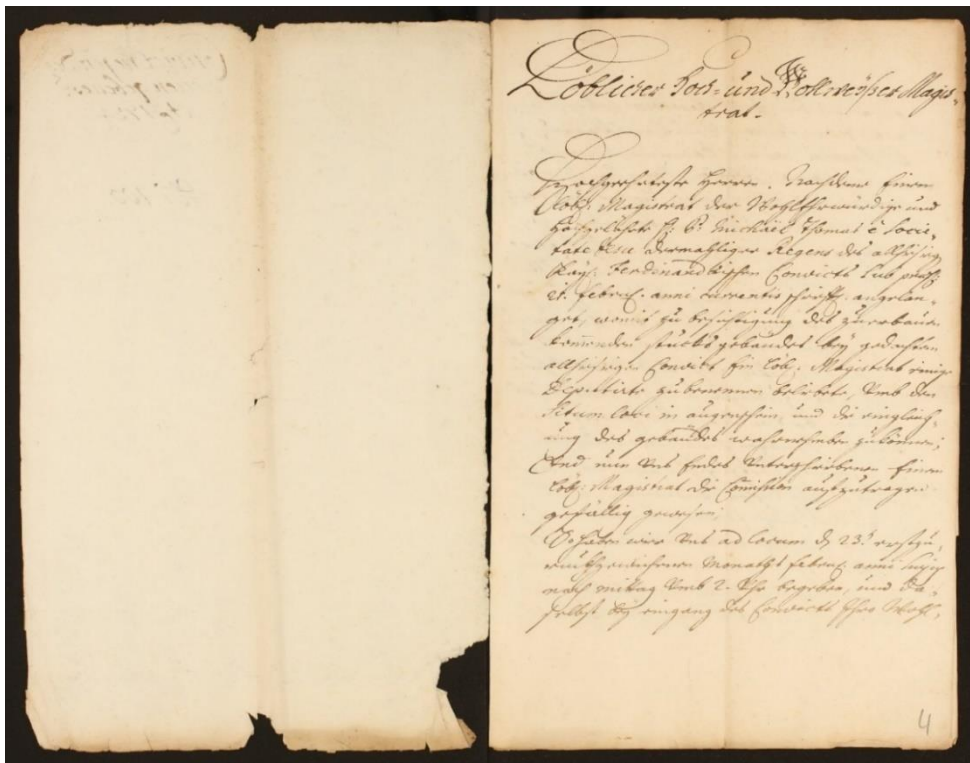 Löblicher Hoch- und Wollweyser Magis-
trat.
Hochgeehrteste Herren. Nachdeme Einem
Löbl: Magistrat der Wohlehrwürdige und
Hochgelehrte H: P: Michael Thomas è Socie-
tate Jesu dermahliger Regens des allhiesig
Kay: Ferdinandeischen Convicts sub
21. Febru: anni currentis angelan-
get, womit zu besichtigung des zuerbauen
kommenden stuckgebäudes bey gedachten
allhiesigen Convict Ein Löb: Magistrat einige
Deputirte zubenennen beliebete, umb den
Situm loci in augenschein, und die eingleich-
ung des gebäudes wahrnehmen zukönnen;
Und nun Uns Endes Unterschriebenen Einem
Löb: Magistrat die Comission aufzutragen
gefällig gewesen;
So haben wir Uns ad locum d 23. erstzu-
ruckhgewichenen Monaths Febru: anni
nach mittag Umb 2. Uhr begeben, und da-
selbst eingang des Convicts Ihro Wohl-
4